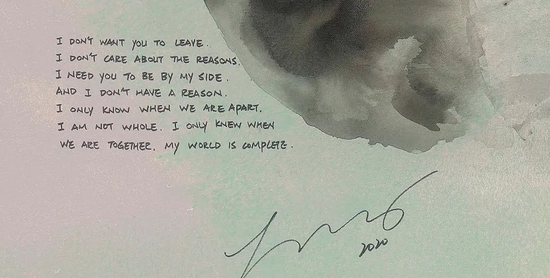 I DON'T WANT YOU TO LEAVE.
I DON'T CARE ABOUT THE REASONS.
I NEED YOU TO BE BY MY SIDE.
AND I DON'T HAVE A REASON.
I ONLY KNOW WHEN WE ARE APART,
I AM NOT WHOLE. I ONLY KNEW WHEN
WE ARE TOGETHER, MY WORLD IS COMPLETE.
2020